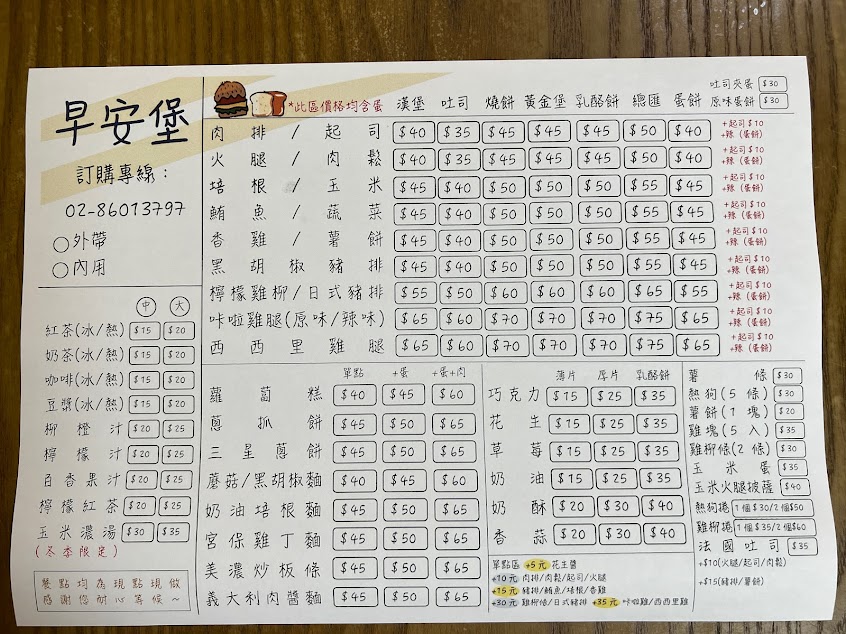 早安堡
訂購專線：
02-86013797
○外帶
○內用
中 大
紅茶(冰/熱) $15 $20
奶茶(冰/熱) $15 $20
咖啡(冰/熱) $15 $20
豆漿(冰/熱) $15 $20
柳橙汁 $20 $25
檸檬汁 $20 $25
百香果汁 $20 $25
檸檬紅茶 $20 $25
玉米濃湯 $30 $35
(冬季限定)
餐點均為現點現做
感謝您耐心等候~
吐司夾蛋 $30
原味蛋餅 $30
*此區價格均含蛋 漢堡 吐司 燒餅 黃金堡 乳酪餅 總匯 蛋餅
肉排/起司 $40 $35 $45 $45 $45 $50 $40 +起司$10 +辣(蛋餅)
火腿/肉鬆 $40 $35 $45 $45 $45 $50 $40 +起司$10 +辣(蛋餅)
培根/玉米 $45 $40 $50 $50 $50 $55 $45 +起司$10 +辣(蛋餅)
鮪魚/蔬菜 $45 $40 $50 $50 $50 $55 $45 +起司$10 +辣(蛋餅)
香雞/薯餅 $45 $40 $50 $50 $50 $55 $45 +起司$10 +辣(蛋餅)
黑胡椒豬排 $45 $40 $50 $50 $50 $55 $45 +起司$10 +辣(蛋餅)
檸檬雞柳/日式豬排 $55 $50 $60 $60 $60 $65 $55 +起司$10 +辣(蛋餅)
咔啦雞腿(原味/辣味) $65 $60 $70 $70 $70 $75 $65 +起司$10 +辣(蛋餅)
西西里雞腿 $65 $60 $70 $70 $70 $75 $65 +起司$10 +辣(蛋餅)
單點 +蛋 +蛋+肉
蘿蔔糕 $40 $45 $60
蔥抓餅 $45 $50 $65
三星蔥餅 $45 $50 $65
蘑菇/黑胡椒麵 $40 $45 $60
奶油培根麵 $45 $50 $65
宮保雞丁麵 $45 $50 $65
美濃炒板條 $45 $50 $65
義大利肉醬麵 $45 $50 $65
薄片 厚片 乳酪餅
巧克力 $15 $25 $35
花生 $15 $25 $35
草莓 $15 $25 $35
奶油 $15 $25 $35
奶酥 $20 $30 $40
香蒜 $20 $30 $40
單點區 +5元 花生醬
+10元 肉排/肉鬆/起司/火腿
+15元 豬排/鮪魚/培根/香雞
+30元 雞柳條/日式豬排 +35元 咔啦雞/西西里雞
薯條 $30
熱狗(5條) $30
薯餅(1塊) $20
雞塊(5入) $35
雞柳條(2條) $30
玉米蛋 $35
玉米火腿披薩 $40
熱狗捲 1個$30/2個$50
雞柳捲 1個$35/2個$60
法國吐司 $35
+$10(火腿/起司/肉鬆)
+$15(豬排/薯餅)